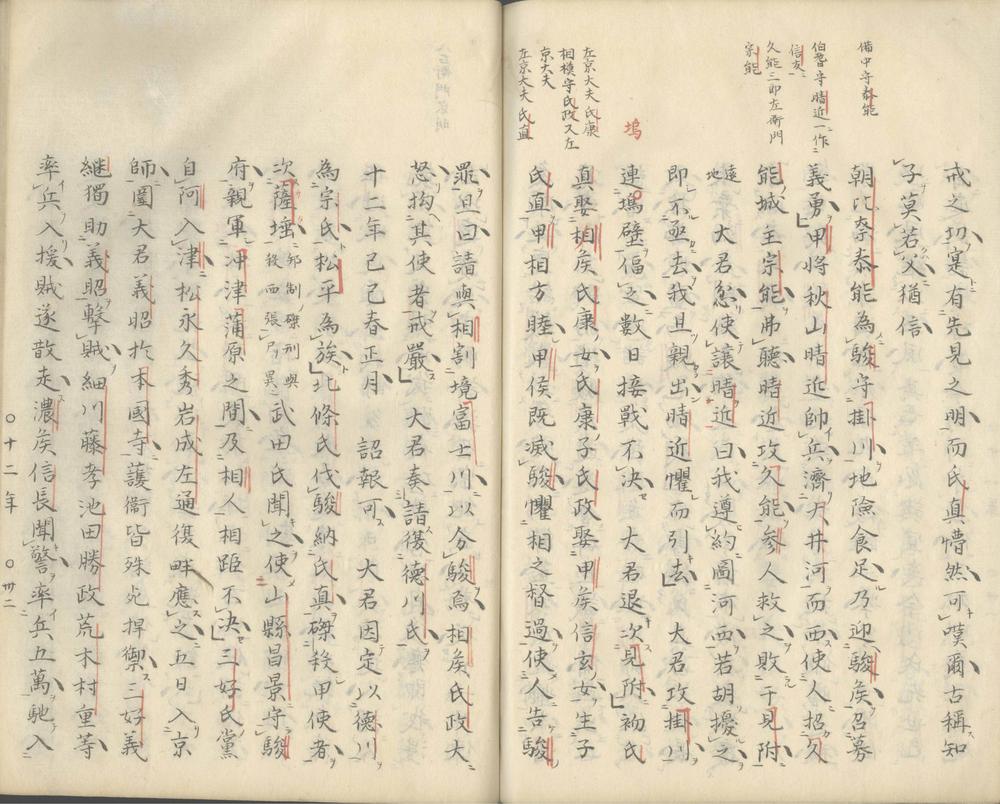 備中守泰能
伯耆守晴近一作
信友
久能三郎左衛門
宗能
塢
左京大夫氏康
相模守氏政又左
京大夫
左京大夫氏直
戒之切寔有先見之明而氏真懵然可嘆爾古稱知
子莫若父猶信
朝比奈泰能為駿守掛川地險食足乃迎駿侯召募
義勇甲將秋山晴近帥兵濟天井河而西使人招久
能城主宗能弗聽晴近攻久能參人救之敗于見附
遠地大君怒使讓晴近曰我遵約圖河西若胡擾之
即不亟去我且親出晴近懼而引去大君攻掛川
連塢壁偪之數日接戰不決大君退次見附初氏
真娶相侯氏康女氏康子氏政娶甲侯信玄女生子
氏直甲相方睦甲侯既滅駿懼相之督過使人告駿
罪且曰請與相割境富士川以分駿焉相侯氏政大
怒拘其使者戒嚴大君奏請復德川氏
十二年己巳春正月詔報可大君因定以德川
為宗氏松平為族北條氏伐駿納氏真磔殺甲使者
次薩埵邦制磔刑與殺而張尸異武田氏聞之使山縣昌景守駿
府親軍沖津蒲原之間及相人相距不決三好氏黨
自阿入津松永久秀岩成左通復畔應之五日入京
師圍大君義昭於本國寺護衛皆殊死捍禦三好義
継獨助義昭擊賊細川藤孝池田勝政荒木村重等
率兵入援賊遂散走濃侯信長聞警率兵五萬馳入
〇十二年
〇卅二